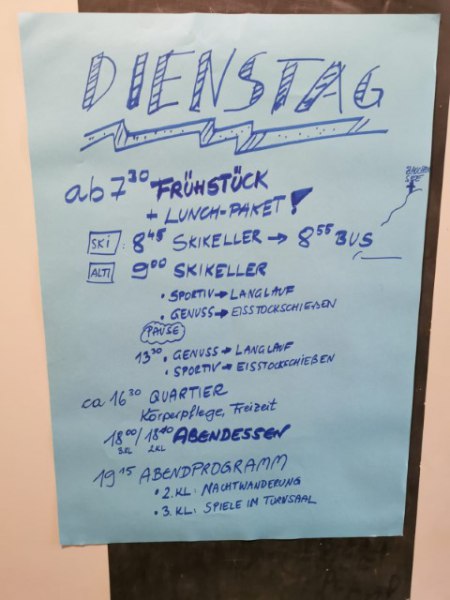 DIENSTAG
ab 7³⁰ FRÜHSTÜCK
+ LUNCH-PAKET!
SKI : 8⁴⁵ SKIKELLER → 8⁵⁵ BUS
ALTI 9⁰⁰ SKIKELLER
• SPORTIV → LANGLAUF
• GENUSS → EISSTOCKSCHIEßEN
PAUSE
13³⁰ • GENUSS → LANGLAUF
• SPORTIV → EISSTOCKSCHIEßEN
ca 16³⁰ QUARTIER
Körperpflege, Freizeit
18⁰⁰/18¹⁰ ABENDESSEN
3.KL 2.KL
19¹⁵ ABENDPROGRAMM
• 2.KL: NACHTWANDERUNG
• 3.KL: SPIELE IM TURNSAAL